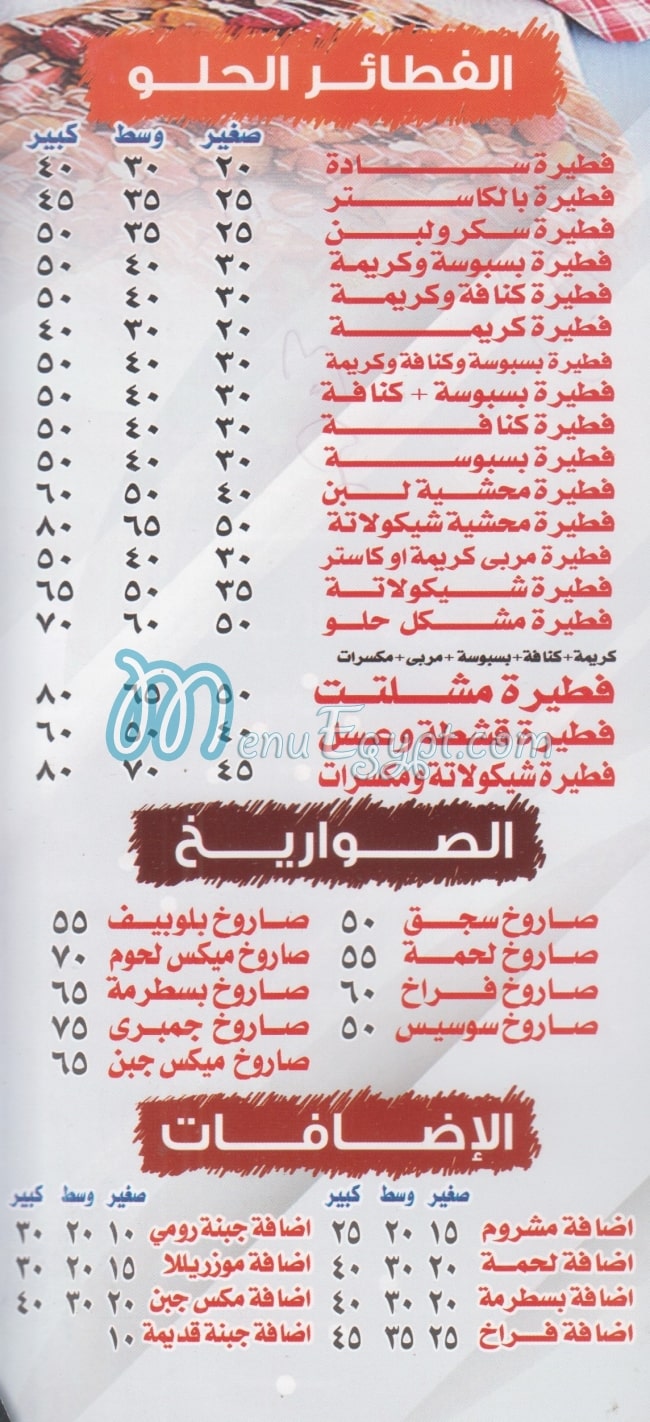 الفطائر الحلو
صغير وسط كبير
فطيرة سادة ٢٠ ٣٠ ٤٠
فطيرة بالكاستر ٢٥ ٣٥ ٤٥
فطيرة سكر ولبن ٢٥ ٣٥ ٥٠
فطيرة بسبوسة وكريمة ٣٠ ٤٠ ٥٠
فطيرة كنافة وكريمة ٣٠ ٤٠ ٥٠
فطيرة كريمة ٢٠ ٣٠ ٤٠
فطيرة بسبوسة وكنافة وكريمة ٣٠ ٤٠ ٥٠
فطيرة بسبوسة + كنافة ٣٠ ٤٠ ٥٠
فطيرة كنافة ٣٠ ٤٠ ٥٠
فطيرة بسبوسة ٣٠ ٤٠ ٥٠
فطيرة محشية لبن ٤٠ ٥٠ ٦٠
فطيرة محشية شيكولاتة ٥٠ ٦٥ ٨٠
فطيرة مربى كريمة او كاستر ٣٠ ٤٠ ٥٠
فطيرة شيكولاتة ٣٥ ٥٠ ٦٥
فطيرة مشكل حلو ٥٠ ٦٠ ٧٠
كريمة+كنافة+بسبوسة+مربى+مكسرات
فطيرة مشلتت ٥٠ ٦٥ ٨٠
فطيرة قشطة وعسل ٤٠ ٥٠ ٦٠
فطيرة شيكولاتة ومكسرات ٤٥ ٧٠ ٨٠
MenuEgypt.com
الصواريخ
صاروخ سجق ٥٠ صاروخ بلوبيف ٥٥
صاروخ لحمة ٥٥ صاروخ ميكس لحوم ٧٠
صاروخ فراخ ٦٠ صاروخ بسطرمة ٦٥
صاروخ سوسيس ٥٠ صاروخ جمبرى ٧٥
صاروخ ميكس جبن ٦٥
الإضافات
صغير وسط كبير صغير وسط كبير
اضافة مشروم ١٥ ٢٠ ٢٥ اضافة جبنة رومي ١٠ ٢٠ ٣٠
اضافة لحمة ٢٠ ٣٠ ٤٠ اضافة موزريللا ١٥ ٢٠ ٣٠
اضافة بسطرمة ٢٠ ٣٠ ٤٠ اضافة مكس جبن ٢٠ ٣٠ ٤٠
اضافة فراخ ٢٥ ٣٥ ٤٥ اضافة جبنة قديمة ١٠